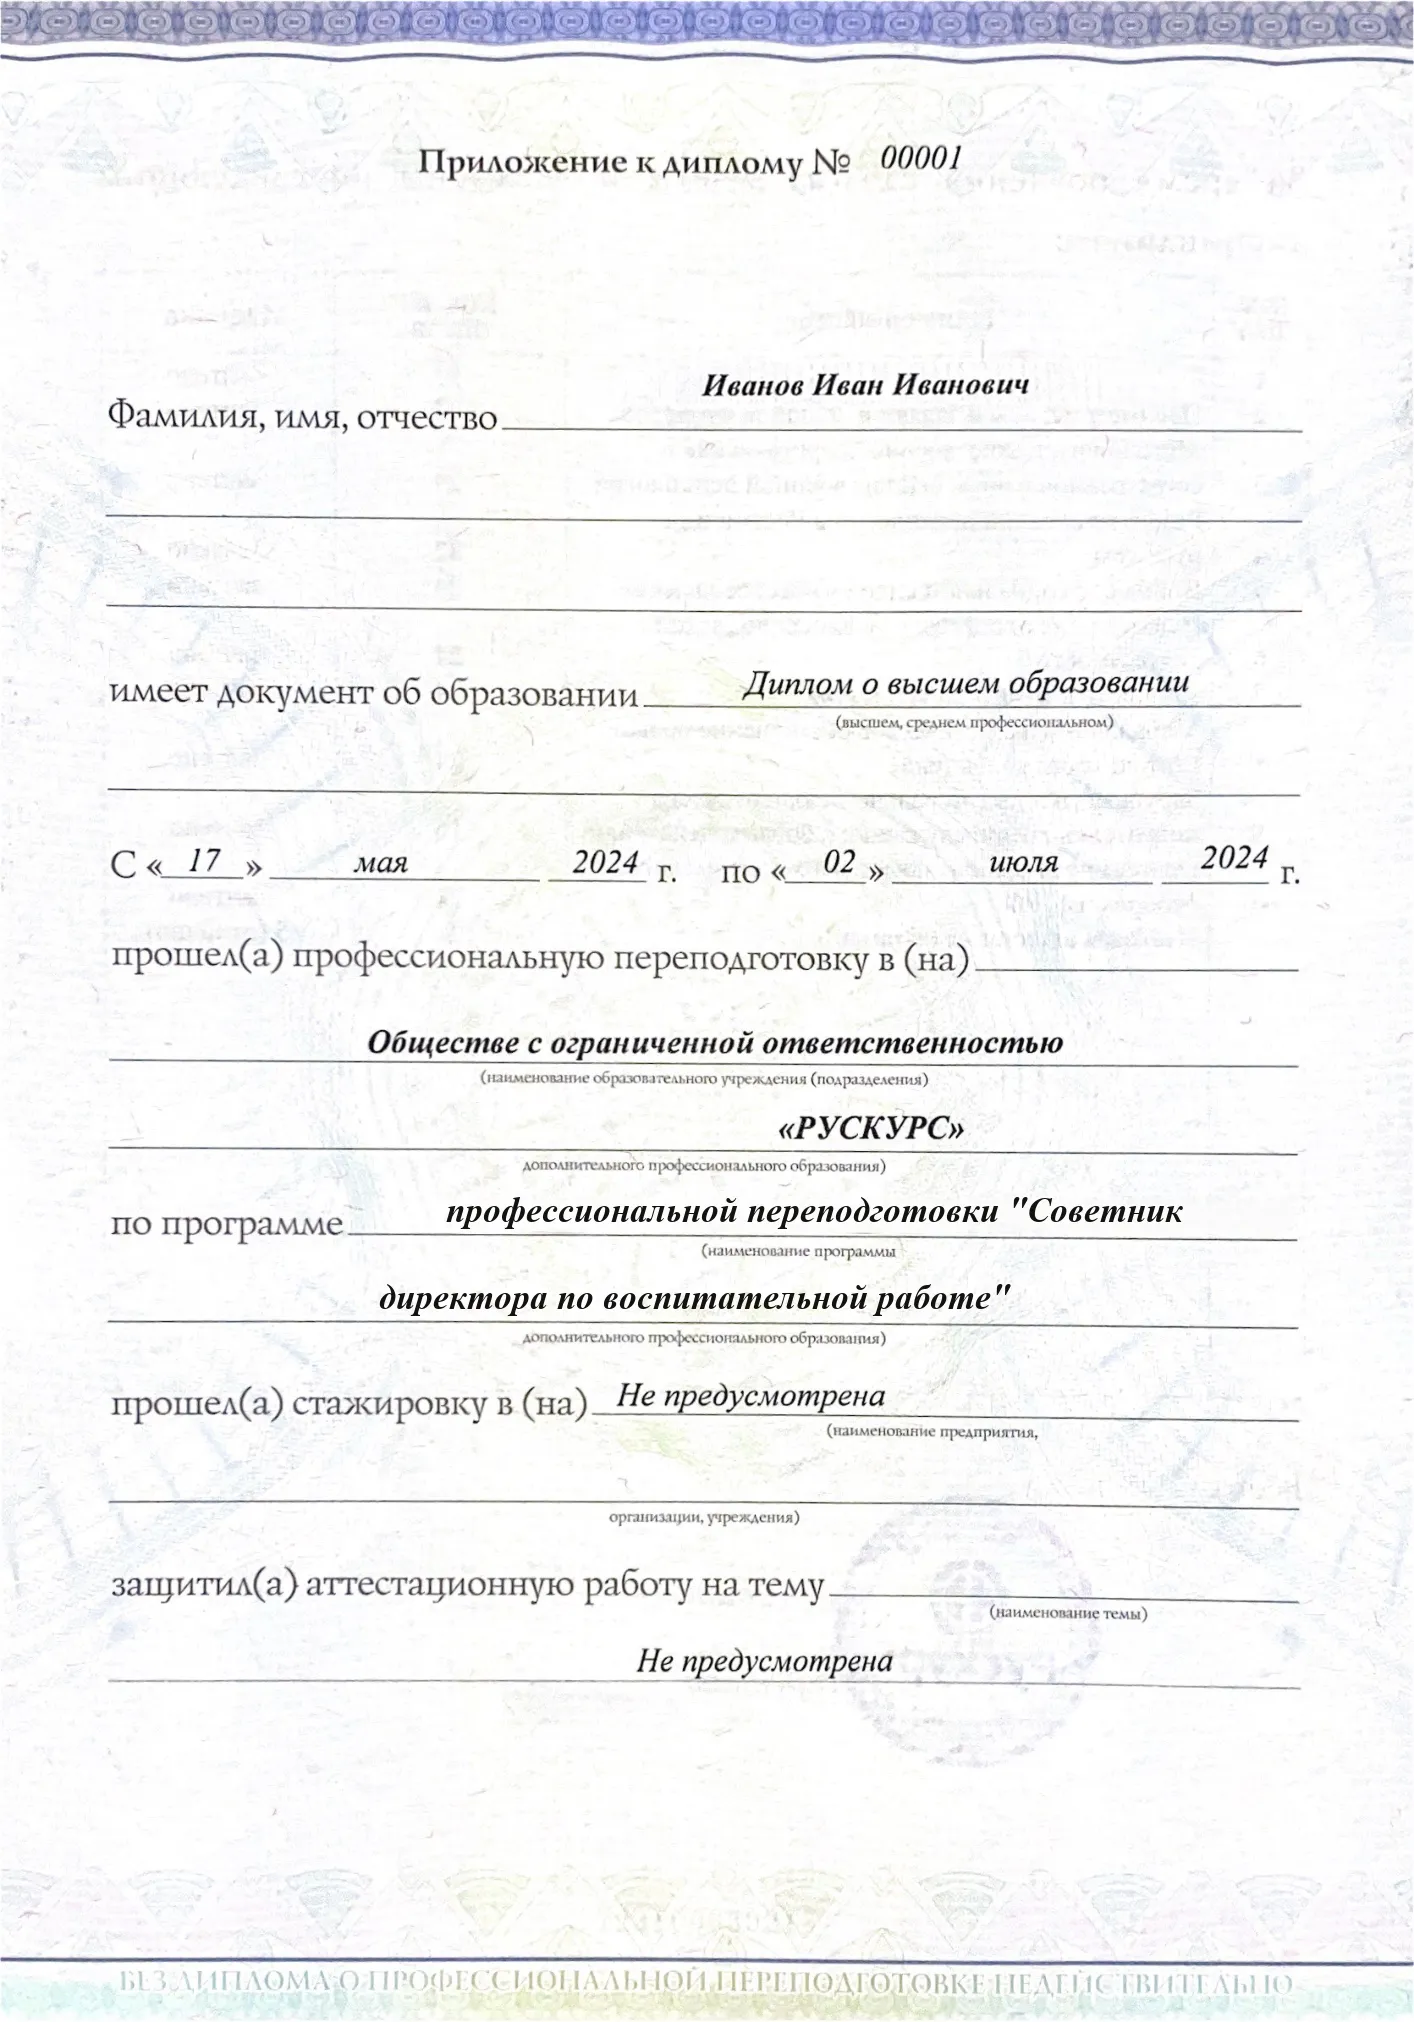 Приложение к диплому № 00001
Иванов Иван Иванович
Фамилия, имя, отчество
имеет документ об образовании Диплом о высшем образовании
(высшем, среднем профессиональном)
С « 17 » мая 2024 г. по « 02 » июля 2024 г.
прошел(а) профессиональную переподготовку в (на)
Обществе с ограниченной ответственностью
(наименование образовательного учреждения (подразделения)
«РУСКУРС»
дополнительного профессионального образования)
по программе профессиональной переподготовки "Советник
(наименование программы
директора по воспитательной работе"
дополнительного профессионального образования)
прошел(а) стажировку в (на) Не предусмотрена
(наименование предприятия,
организации, учреждения)
защитил(а) аттестационную работу на тему
(наименование темы)
Не предусмотрена
БЕЗ ДИПЛОМА О ПРОФЕССИОНАЛЬНОЙ ПЕРЕПОДГОТОВКЕ НЕДЕЙСТВИТЕЛЬНО